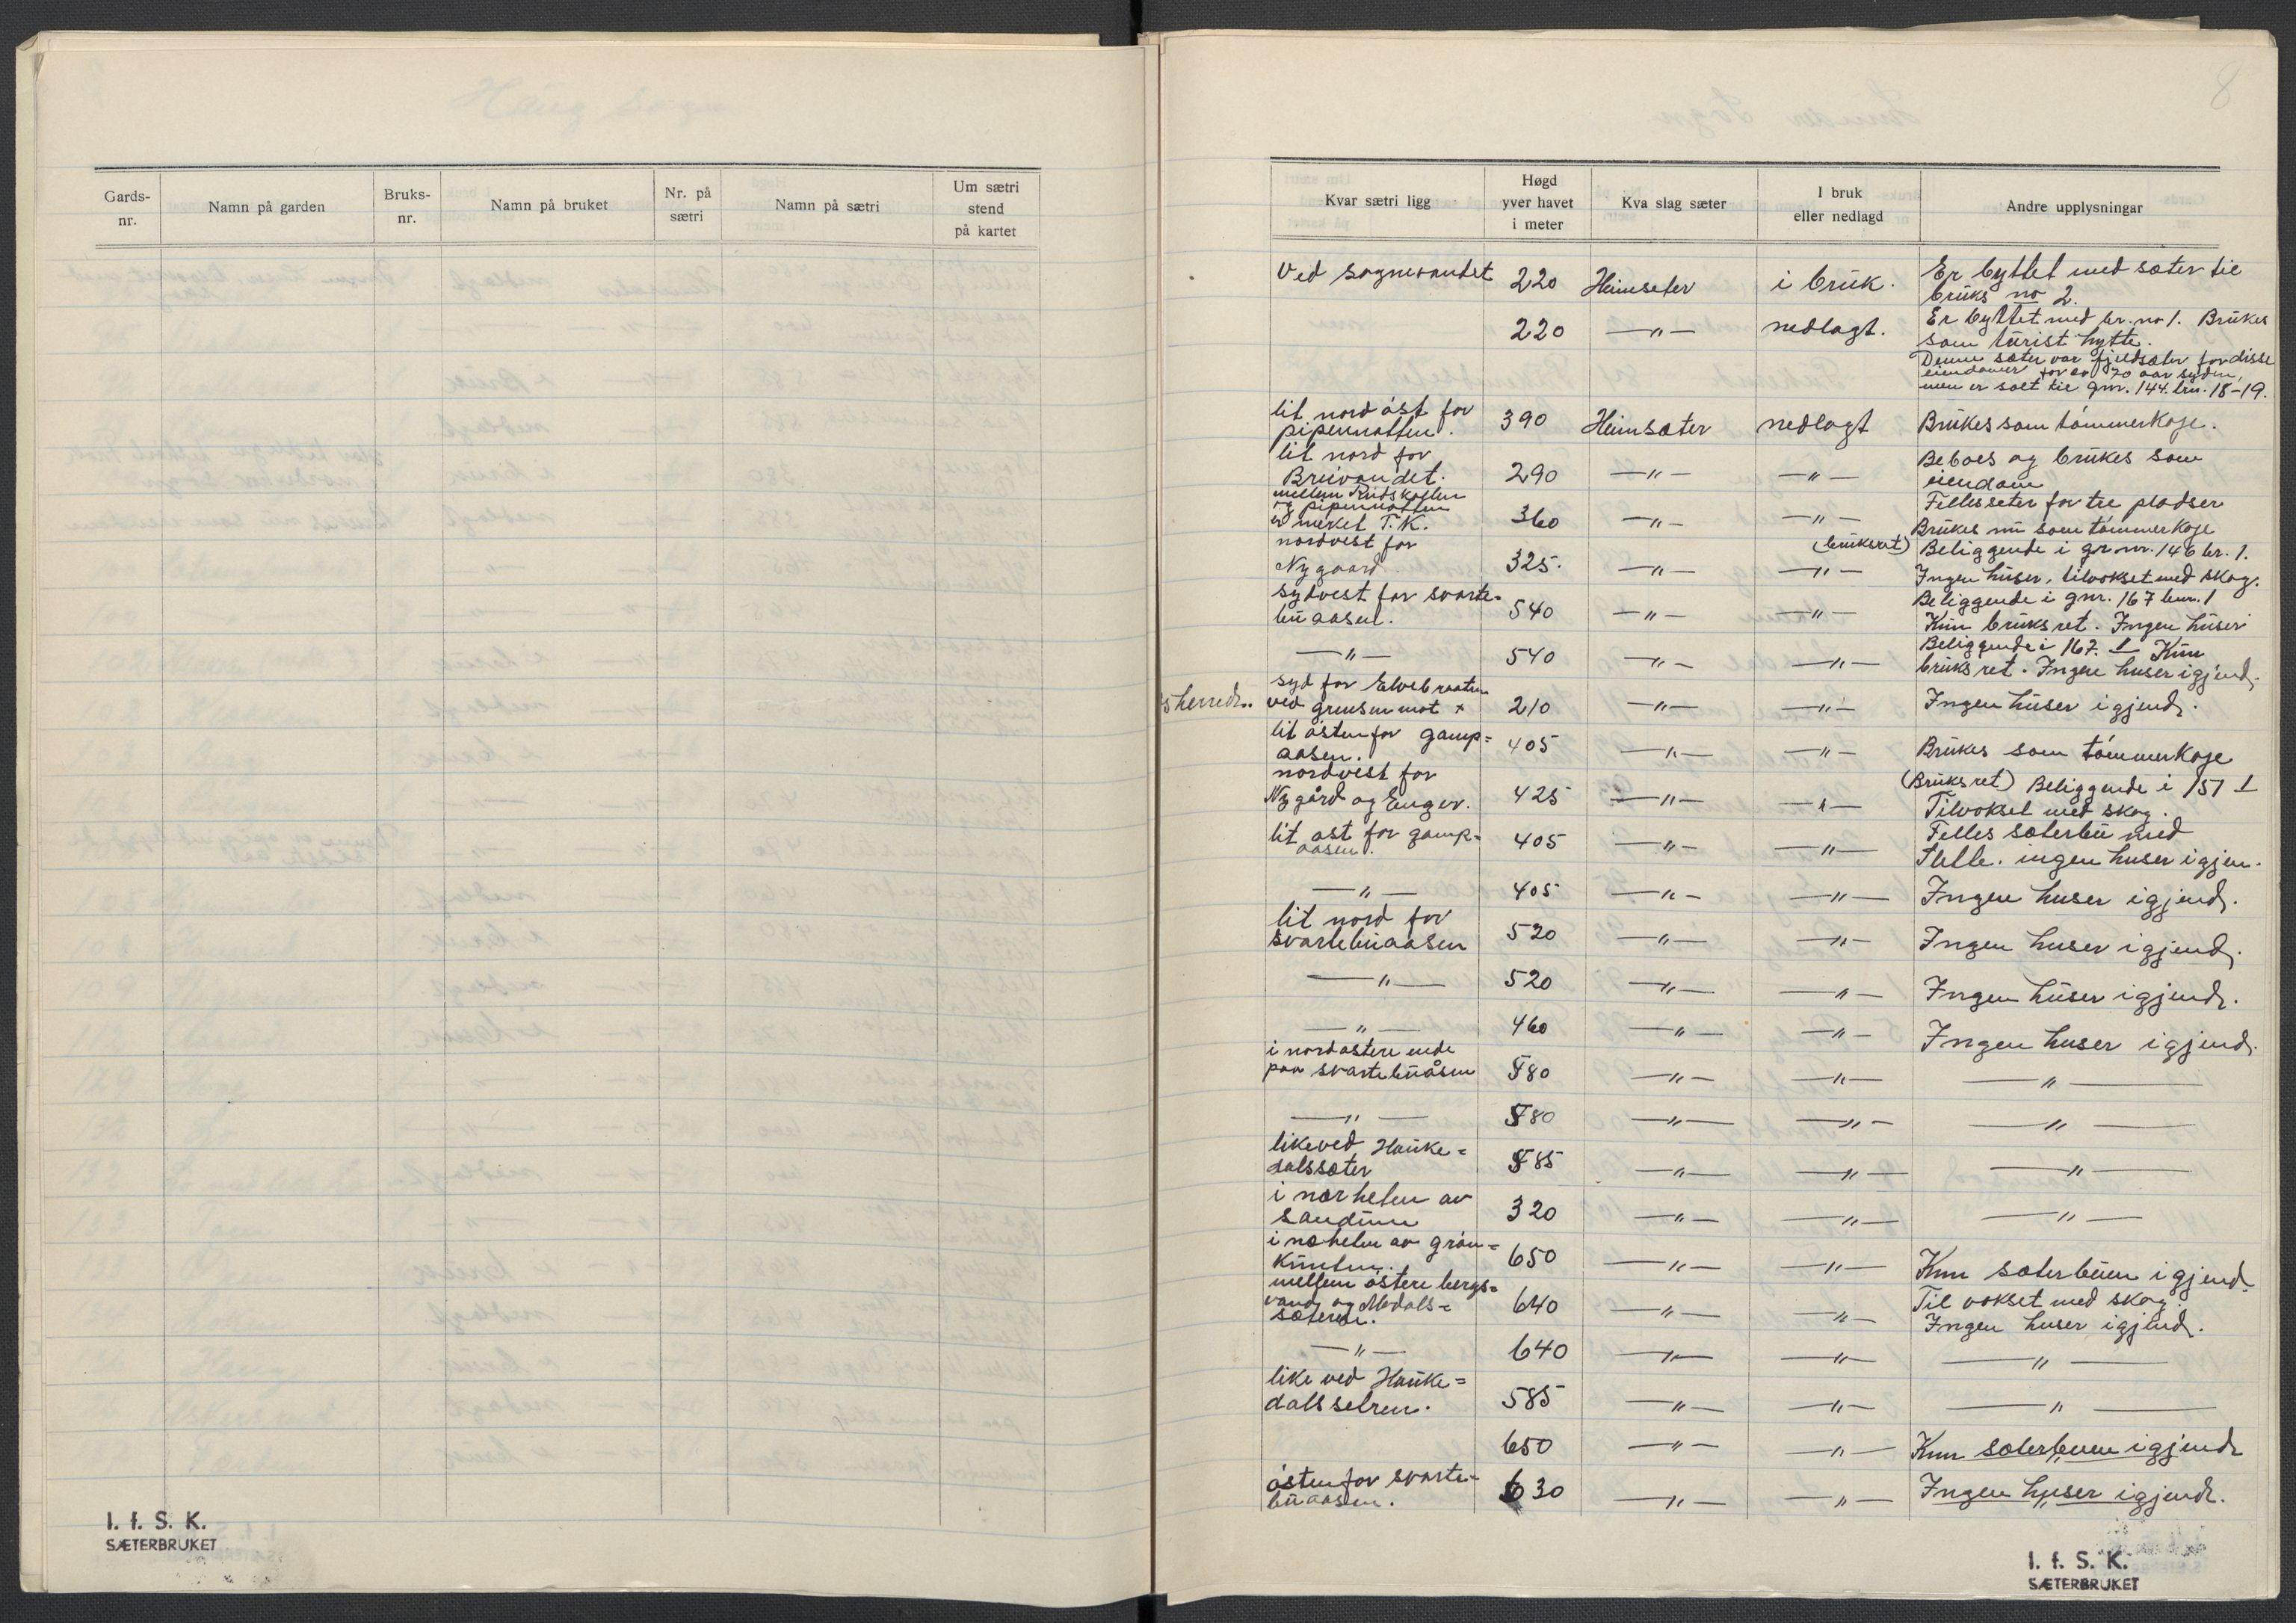 Gards-
nr.
Namn på garden
Bruks-
nr.
Namn på bruket
Nr. på
sætri
Namn på sætri
Um sætri
stend
på kartet
I. f. S. K.
SÆTERBRUKET
8
Kvar sætri ligg
Høgd
yver havet
i meter
Kva slag sæter
I bruk
eller nedlagd
Andre upplysningar
Ved sognevandet 220 Heimseter i brük. Er byttet med sæter til
brüks no 2.
220 —„— nedlagt. Er byttet med br. no 1. Brükes
som türist hytte.
Denne sæter var fjeldsæter for disse
eiendomer for ca 70 aar siden,
men er solt til gnr. 144. brn. 18-19.
lit nord öst for
pipernatten. 390 Heimsæter nedlagt Brükes som tömmerkoje.
lit nord for
Brüvandet. 290 —„— —„— Beboes og brükes som
eiendom
mellem Rüdskollen
og pipernatten
er merket T. K. 360 —„— —„— Fellesseter for tre pladser
Brükes nü som tömmerkoje
nordvest for
Nygaard. 325. —„— (brüksret) —„— Beliggende i gr nr. 146 br. 1.
Ingen hüser, tilvokset med skog.
sydvest for svarte=
büaasen. 540 —„— —„— Beliggende i gnr. 167 bnr. 1
Kün brüksret. Ingen hüser
—„— 540 —„— —„— Beliggende i 167. 1 Kün
brüksret. Ingen huser igjend.
syd for Elvebraaten
s herred.. ved grensen mot x 210 —„— —„— Ingen hüser igjend.
lit östenfor gamp=
aasen. 405 —„— —„— Brükes som tömmerkoje
nordvest for
Nygård og Enger. 425 —„— —„— (Brüksret) Beliggende i 151 1
Tilvokset med skog.
lit øst for gamp=
aasen. 405 —„— —„— Felles sæterbü med
Melle. ingen huser igjen.
—„— 405 —„— —„— Ingen huser igjend.
lit nord for
svartebüaasen 520 —„— —„— Ingen huser igjend.
—„— 520 —„— —„— Ingen hüser igjend.
—„— 460 —„— —„— Ingen huser igjend.
i nordøstere ende
paa svartebüåsen 580 —„— —„— —„—
—„— 580 —„— —„— —„—
likeved Haüke=
dalssæter 585 —„— —„— —„—
i nærheten av
320 —„— —„— —„—
i næheten av grön=
650 —„— —„— Kun sæterbüen igjend.
mellem östere bergs=
vand og Medals=
640 —„— —„— Til vokset med skog.
Ingen huser igjend.
—„— 640 —„— —„— —„—
like ved Haüke=
dalssetren. 585 —„— —„— —„—
650 —„— —„— Kun sæterbuen igjend
östenfor svarte=
büaasen. 630 —„— —„— Ingen huser igjend.
I. f. S. K.
SÆTERBRUKET